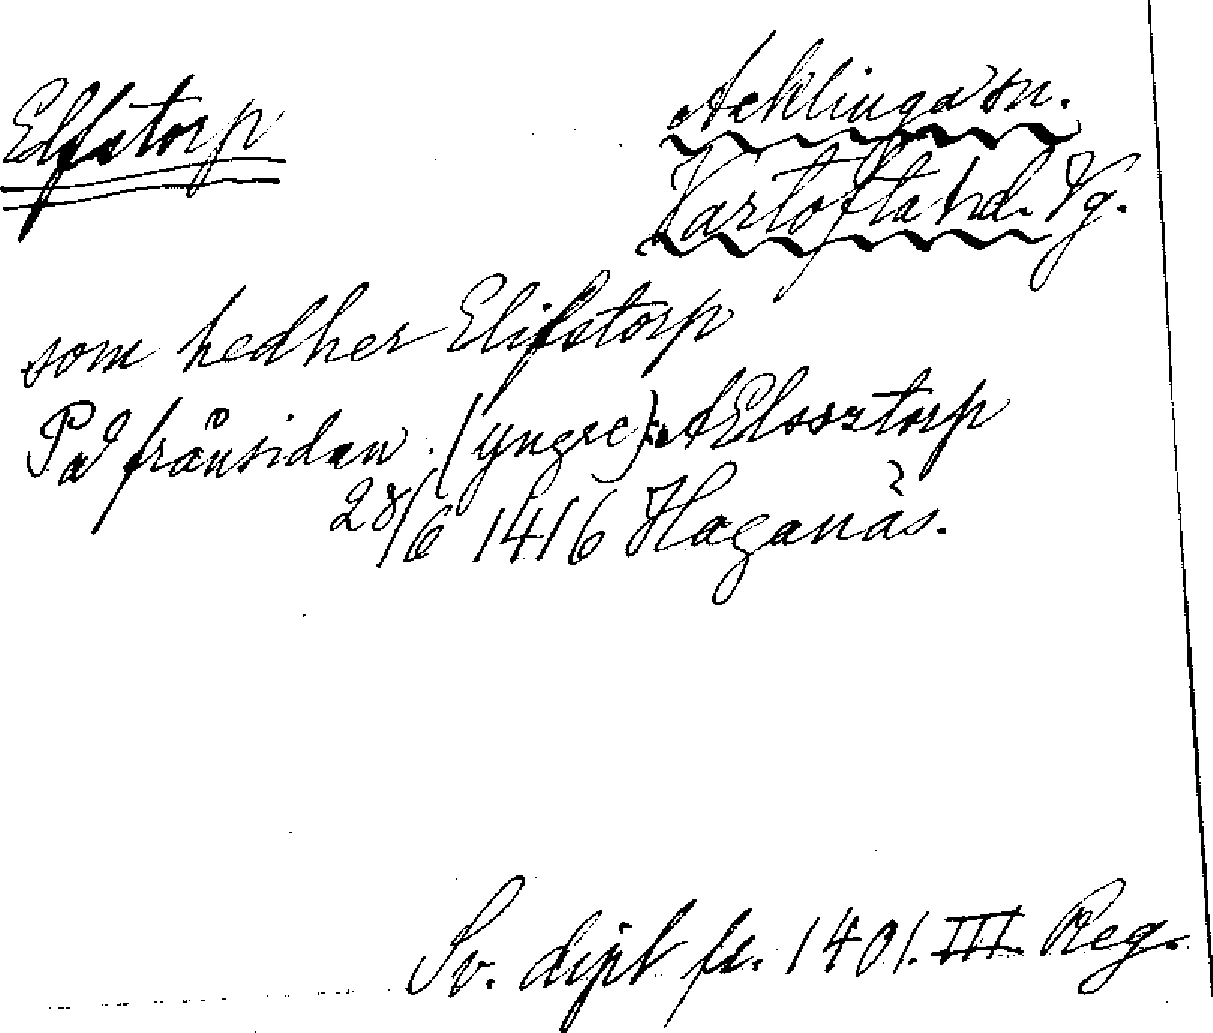 Elfstorp
Acklinga sn.
Kartofta hd. Vg.
som hedher Elifstorp
På frånsidan (yngre): AElossztorp
28/6 1416 Haganäs.
Sv. dipl fr. 1401. III. Reg.